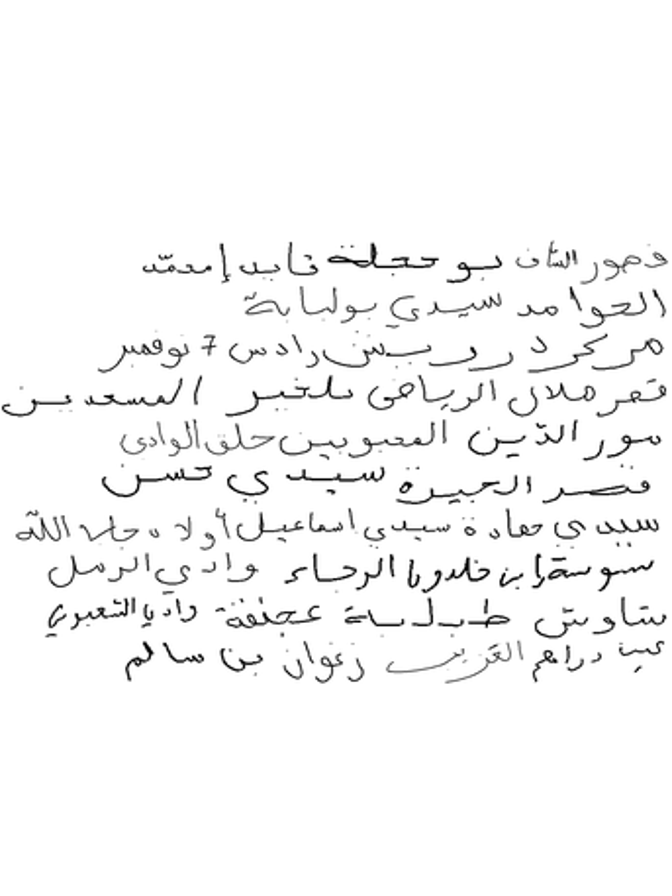 قصور الساف بو حجلة قايد إمحمد
الحوامد سيدي بولبابة
مركز دريش رادس 7 نوفمبر
قصر هلال الرياض بلخير المسعدين
سور الدّين المحبوبين حلق الوادي
قصر الجيرة سيدي حسن
سيدي حمادة سيدي اسماعيل أولاد جاب الله
سوسة ابن خلدون الرجاء وادي الرمل
شاوش طبلبة عجنقة واديا الشعبوني
عين دراهم الغريب زغوان بن سالم